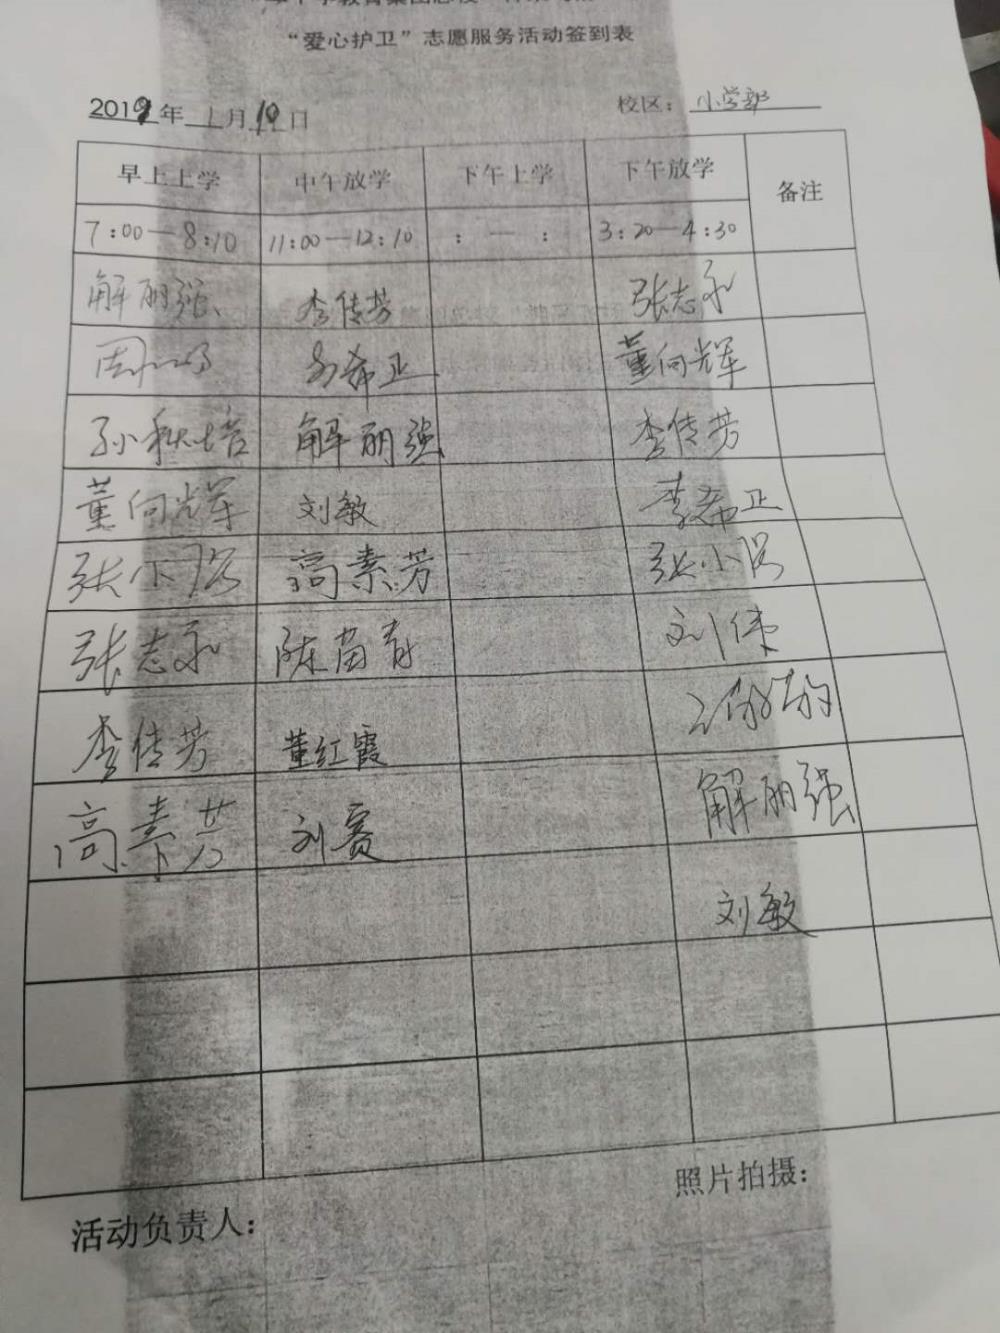 “爱心护卫”志愿服务活动签到表
2019年 1月10日 校区：小学部
早上上学 中午放学 下午上学 下午放学 备注
7:00—8:10 11:00—12:10 : — : 3:20—4:30
解丽强 李传芳 张志永
李希正 董向辉
孙秋培 解丽强 李传芳
董向辉 刘敏 李希正
张小 高素芳 张小
张志永 陈苗青 刘伟
李传芳 董红霞
高素芳 刘赛 解丽强
刘敏
照片拍摄：
活动负责人：